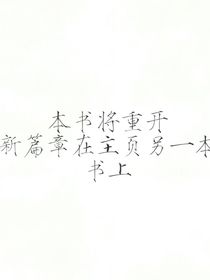 本书将重开
新篇章在主页另一本
书上